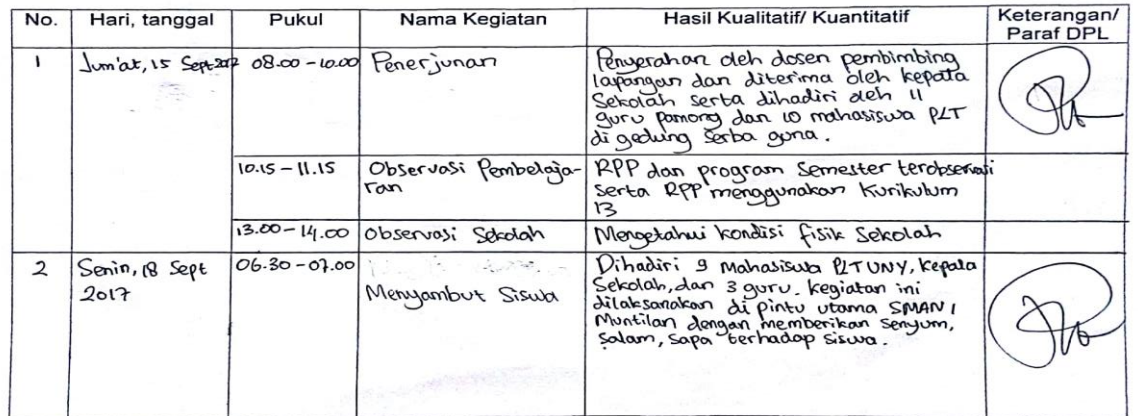 No. Hari, tanggal Pukul Nama Kegiatan Hasil Kualitatif/ Kuantitatif Keterangan/
Paraf DPL
1 Jum'at, 15 Sept 2017 08.00 - 10.00 Penerjunan Penyerahan oleh dosen pembimbing
lapangan dan diterima oleh kepala
Sekolah serta dihadiri oleh 11
guru pamong dan 10 mahasiswa PLT
di gedung serba guna.
10.15 - 11.15 Observasi Pembelaja- RPP dan program Semester terobservasi
ran serta RPP menggunakan Kurikulum
13
13.00 - 14.00 Observasi Sekolah Mengetahui kondisi fisik Sekolah
2 Senin, 18 Sept 06.30 - 07.00 Dihadiri 9 Mahasiswa PLT UNY, Kepala
2017 Menyambut Siswa Sekolah, dan 3 guru. kegiatan ini
dilaksanakan di pintu utama SMAN 1
Muntilan dengan memberikan senyum,
salam, sapa terhadap siswa.